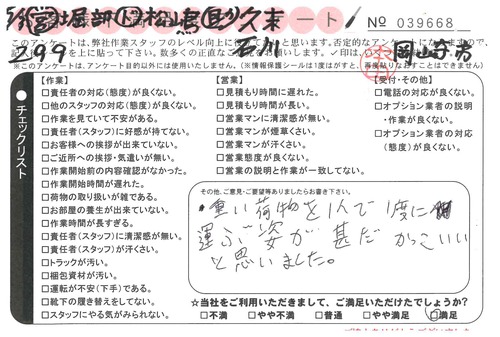 アンケート No 039668
このアンケートは、弊社作業スタッフのレベル向上に
※このアンケートは、アンケート目的以外には使用いたしません。(※情報保護シールは1度はがすと、再度貼りなおすことはできません)
299 石川 岡山 市
チェックリスト
【作業】
□責任者の対応(態度)が良くない。
□他のスタッフの対応(態度)が良くない。
□作業を見ていて不安がある。
□責任者(スタッフ)に好感が持てない。
□お客様への挨拶が出来ていない。
□ご近所への挨拶・気遣いが無い。
□作業開始前の内容確認がなかった。
□作業開始時間が遅れた。
□荷物の取り扱いが雑である。
□お部屋の養生が出来ていない。
□作業時間が長すぎる。
□責任者(スタッフ)に清潔感が無い。
□責任者(スタッフ)が汗くさい。
□トラックが汚い。
□梱包資材が汚い。
□運転が不安(下手)である。
□靴下の履き替えをしてない。
□スタッフにやる気がみられない。
【営業】
□見積もり時間に遅れた。
□見積もり時間が長い。
□営業マンに清潔感が無い。
□営業マンが煙草くさい。
□営業マンが汗くさい。
□営業態度が良くない。
□営業の説明と作業が一致してない。
【受付・その他】
□電話の対応が良くない。
□オプション業者の説明
・作業が良くない。
□オプション業者の対応
(態度)が良くない。
その他、ご意見・ご要望等ありましたらお書き下さい。
・重い荷物を1人で1度に
運ぶ姿が甚だかっこいい
と思いました。
☆当社をご利用いただきまして、ご満足いただけたでしょうか?
□不満 □やや不満 □普通 □やや満足 □満足